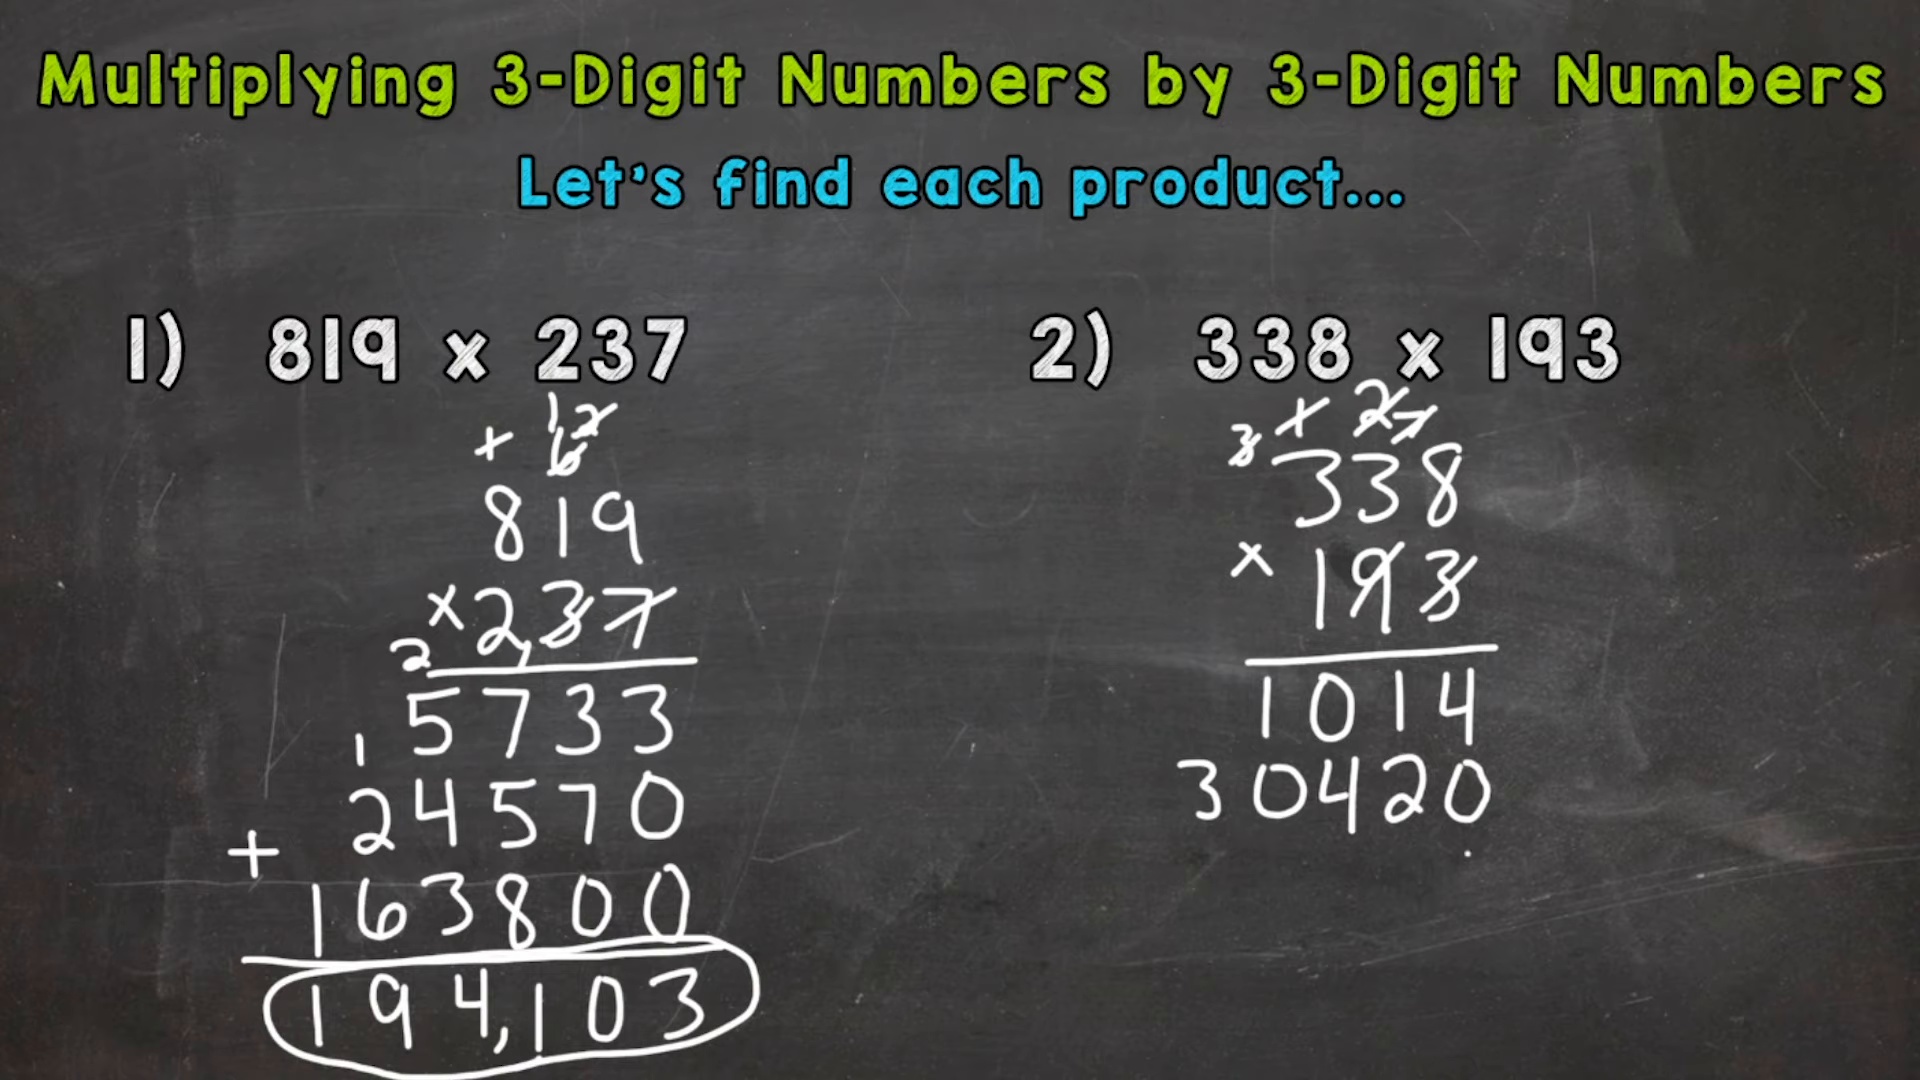 Multiplying 3-Digit Numbers by 3-Digit Numbers
Let's find each product...
1) 819 x 237
1 2
+ 6
819
x 2,37
2
5733
1
24570
+
163800
194,103
2) 338 x 193
1 2 7
3
338
x 193
1014
30420